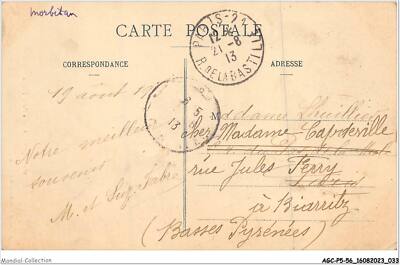 morbihan
CARTE POSTALE
CORRESPONDANCE
ADRESSE
PARIS-21
12
21-8
13
R. DE LA BASTILLE
19 août
5
8
13
Notre meilleur
souvenir
M. et Suz. Fabre
Madame Lhuillier
chez Madame Capdeville
rue Jules Ferry
à Biarritz
(Basses Pyrénées)
Mondial Collection
AGC-P5-56_16082023_033